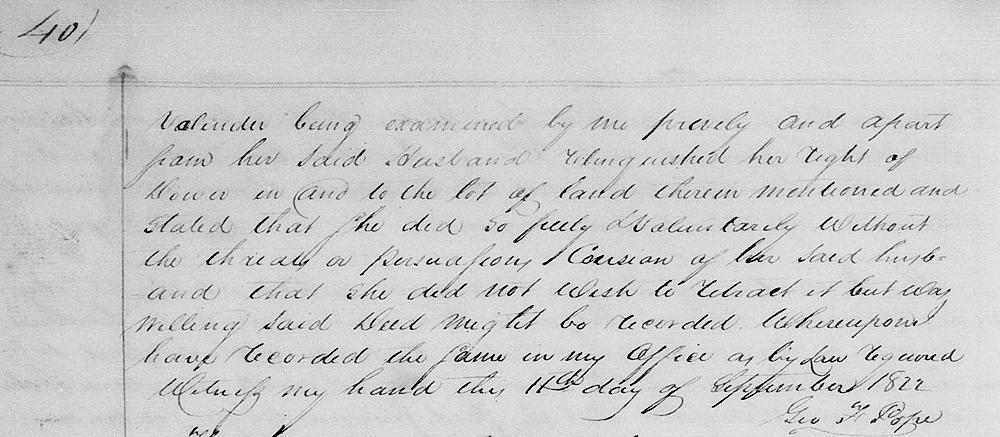 401
Valinder being examined by me privily and apart
from her said Husband relinquished her right of
Dower in and to the lot of land therein mentioned and
stated that She did so freely & Voluntarily Without
the threats or persuasions Coersion of her said husb-
-and that She did not Wish to retract it but was
Willing said Deed Might be recorded. Whereupon
have recorded the same in my Office as by Law required
Witness my hand this 11th day of September 1822
Geo F Pope